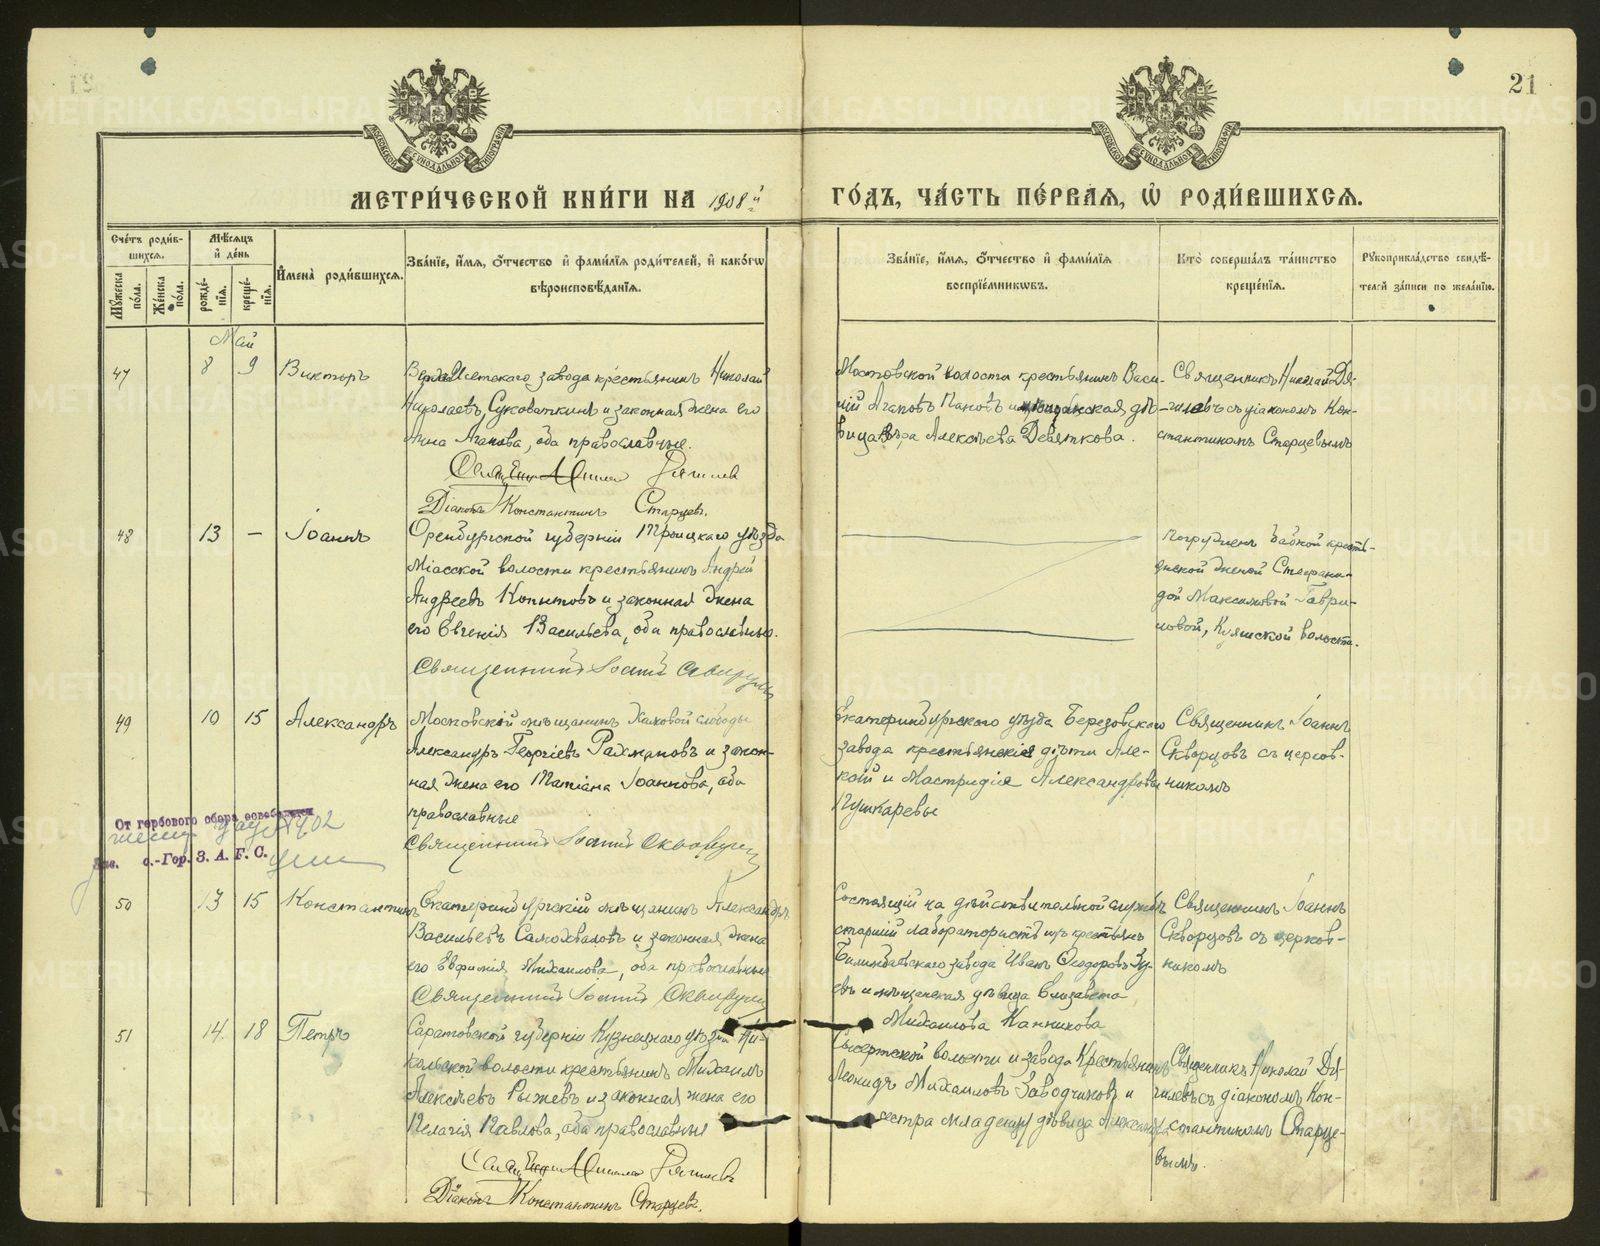 21
МОСКОВСКОЙ СѴНОДАЛЬНОЙ ТИПОГРАФІИ
МОСКОВСКОЙ СѴНОДАЛЬНОЙ ТИПОГРАФІИ
МЕТРИ́ЧЕСКОЙ КНИ́ГИ НА 1908й
ГО́ДЪ, ЧА́СТЬ ПЕ́РВАЯ, Ѡ҆ РОДИ́ВШИХСЯ.
Сче́тъ роди́в-
шихся.
Мꙋ́жеска по́ла.
Же́нска по́ла.
Мѣ́сяцъ
и҆ де́нь
рожде́-
нїя.
креще́-
нїя.
И҆мена̀ роди́вшихся.
Зва́нїе, и҆́мя, ѻ҆́тчество и҆ фами́лїя роди́телей, и҆ како́гѡ
вѣроисповѣ́данїя.
Зва́нїе, и҆́мя, ѻ҆́тчество и҆ фами́лїя
воспрїе́мникѡвъ.
Кто̀ соверша́лъ та́инство
креще́нїя.
Рꙋкоприкла́дство свидѣ́-
телей за́писи по жела́нїю.
Май
47
8
9
Викторъ
Верхъ-Исетскаго завода крестьянинъ Николай
Николаевъ Суковаткинъ и законная жена его
Анна Агапова, оба православные.
Діаконъ Константинъ Старцевъ.
Мостовской волости крестьянинъ Васи-
лій Агаповъ Пановъ и дѣ-
вица Вѣра Алексѣева Девяткова.
Священникъ Николай Дя-
гилевъ съ діакономъ Кон-
стантиномъ Старцевымъ
48
13
—
Іоаннъ
Оренбургской губерніи Троицкаго уѣзда
Міасской волости крестьянинъ Андрей
Андреевъ Копытовъ и законная жена
его Евгенія Васильева, оба православные.
Священникъ Іоаннъ Скворцовъ
Погруженъ бабкой кресть-
янской женой Степани-
дой Максимовой Гаври-
ловой, Куяшской волости.
49
10
15
Александръ
Московскій мѣщанинъ слободы
Александръ Георгіевъ Рахмановъ и закон-
ная жена его Татіана Іоаннова, оба
православные
Священникъ Іоаннъ Скворцовъ
Екатеринбургскаго уѣзда Березовскаго
завода крестьянскіе дѣти Але-
ксѣй и Мастридія Александровы
Пушкаревы
Священникъ Іоаннъ
Скворцовъ съ церков-
никомъ
От гербового сбора освобожден
Зав. С.-Гор. З. А. Г. С.
50
13
15
Константинъ
Екатеринбургскій мѣщанинъ Александръ
Васильевъ Самохваловъ и законная жена
его Евфимія Михаилова, оба православные
Священникъ Іоаннъ Скворцовъ
Состоящій на дѣйствительной службѣ
старшій лабораториstъ изъ крестьянъ
Билимбаевскаго завода Иванъ Ѳеодоровъ Зу-
евъ и мѣщанская дѣвица Елизавета
Михаилова Канникова
Священникъ Іоаннъ
Скворцовъ съ церков-
никомъ
51
14
18
Петръ
Саратовской губерніи Кузнецкаго уѣзда Ни-
кольской волости крестьянинъ Михаилъ
Алексѣевъ Рыжевъ и законная жена его
Пелагія Павлова, оба православные
Діаконъ Константинъ Старцевъ.
Сысертской волости и завода Крестьянинъ
Леонидъ Михаиловъ Заводчиковъ и
сестра младенцу дѣвица Александра
Священникъ Николай Дя-
гилевъ съ діакономъ Кон-
стантиномъ Старце-
вымъ.
METRIKI.GASO-URAL.RU